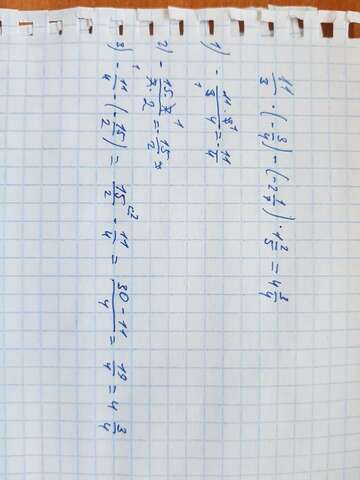 11/3 · (-3/4) - (-2 1/7) · 1 2/5 = 4 3/4
1) - 11·3/3·4 = -11/4
2) - 15·7/7·2 = -15/2
3) - 11/4 - (-15/2) = 15/2 - 11/4 = 30-11/4 = 19/4 = 4 3/4